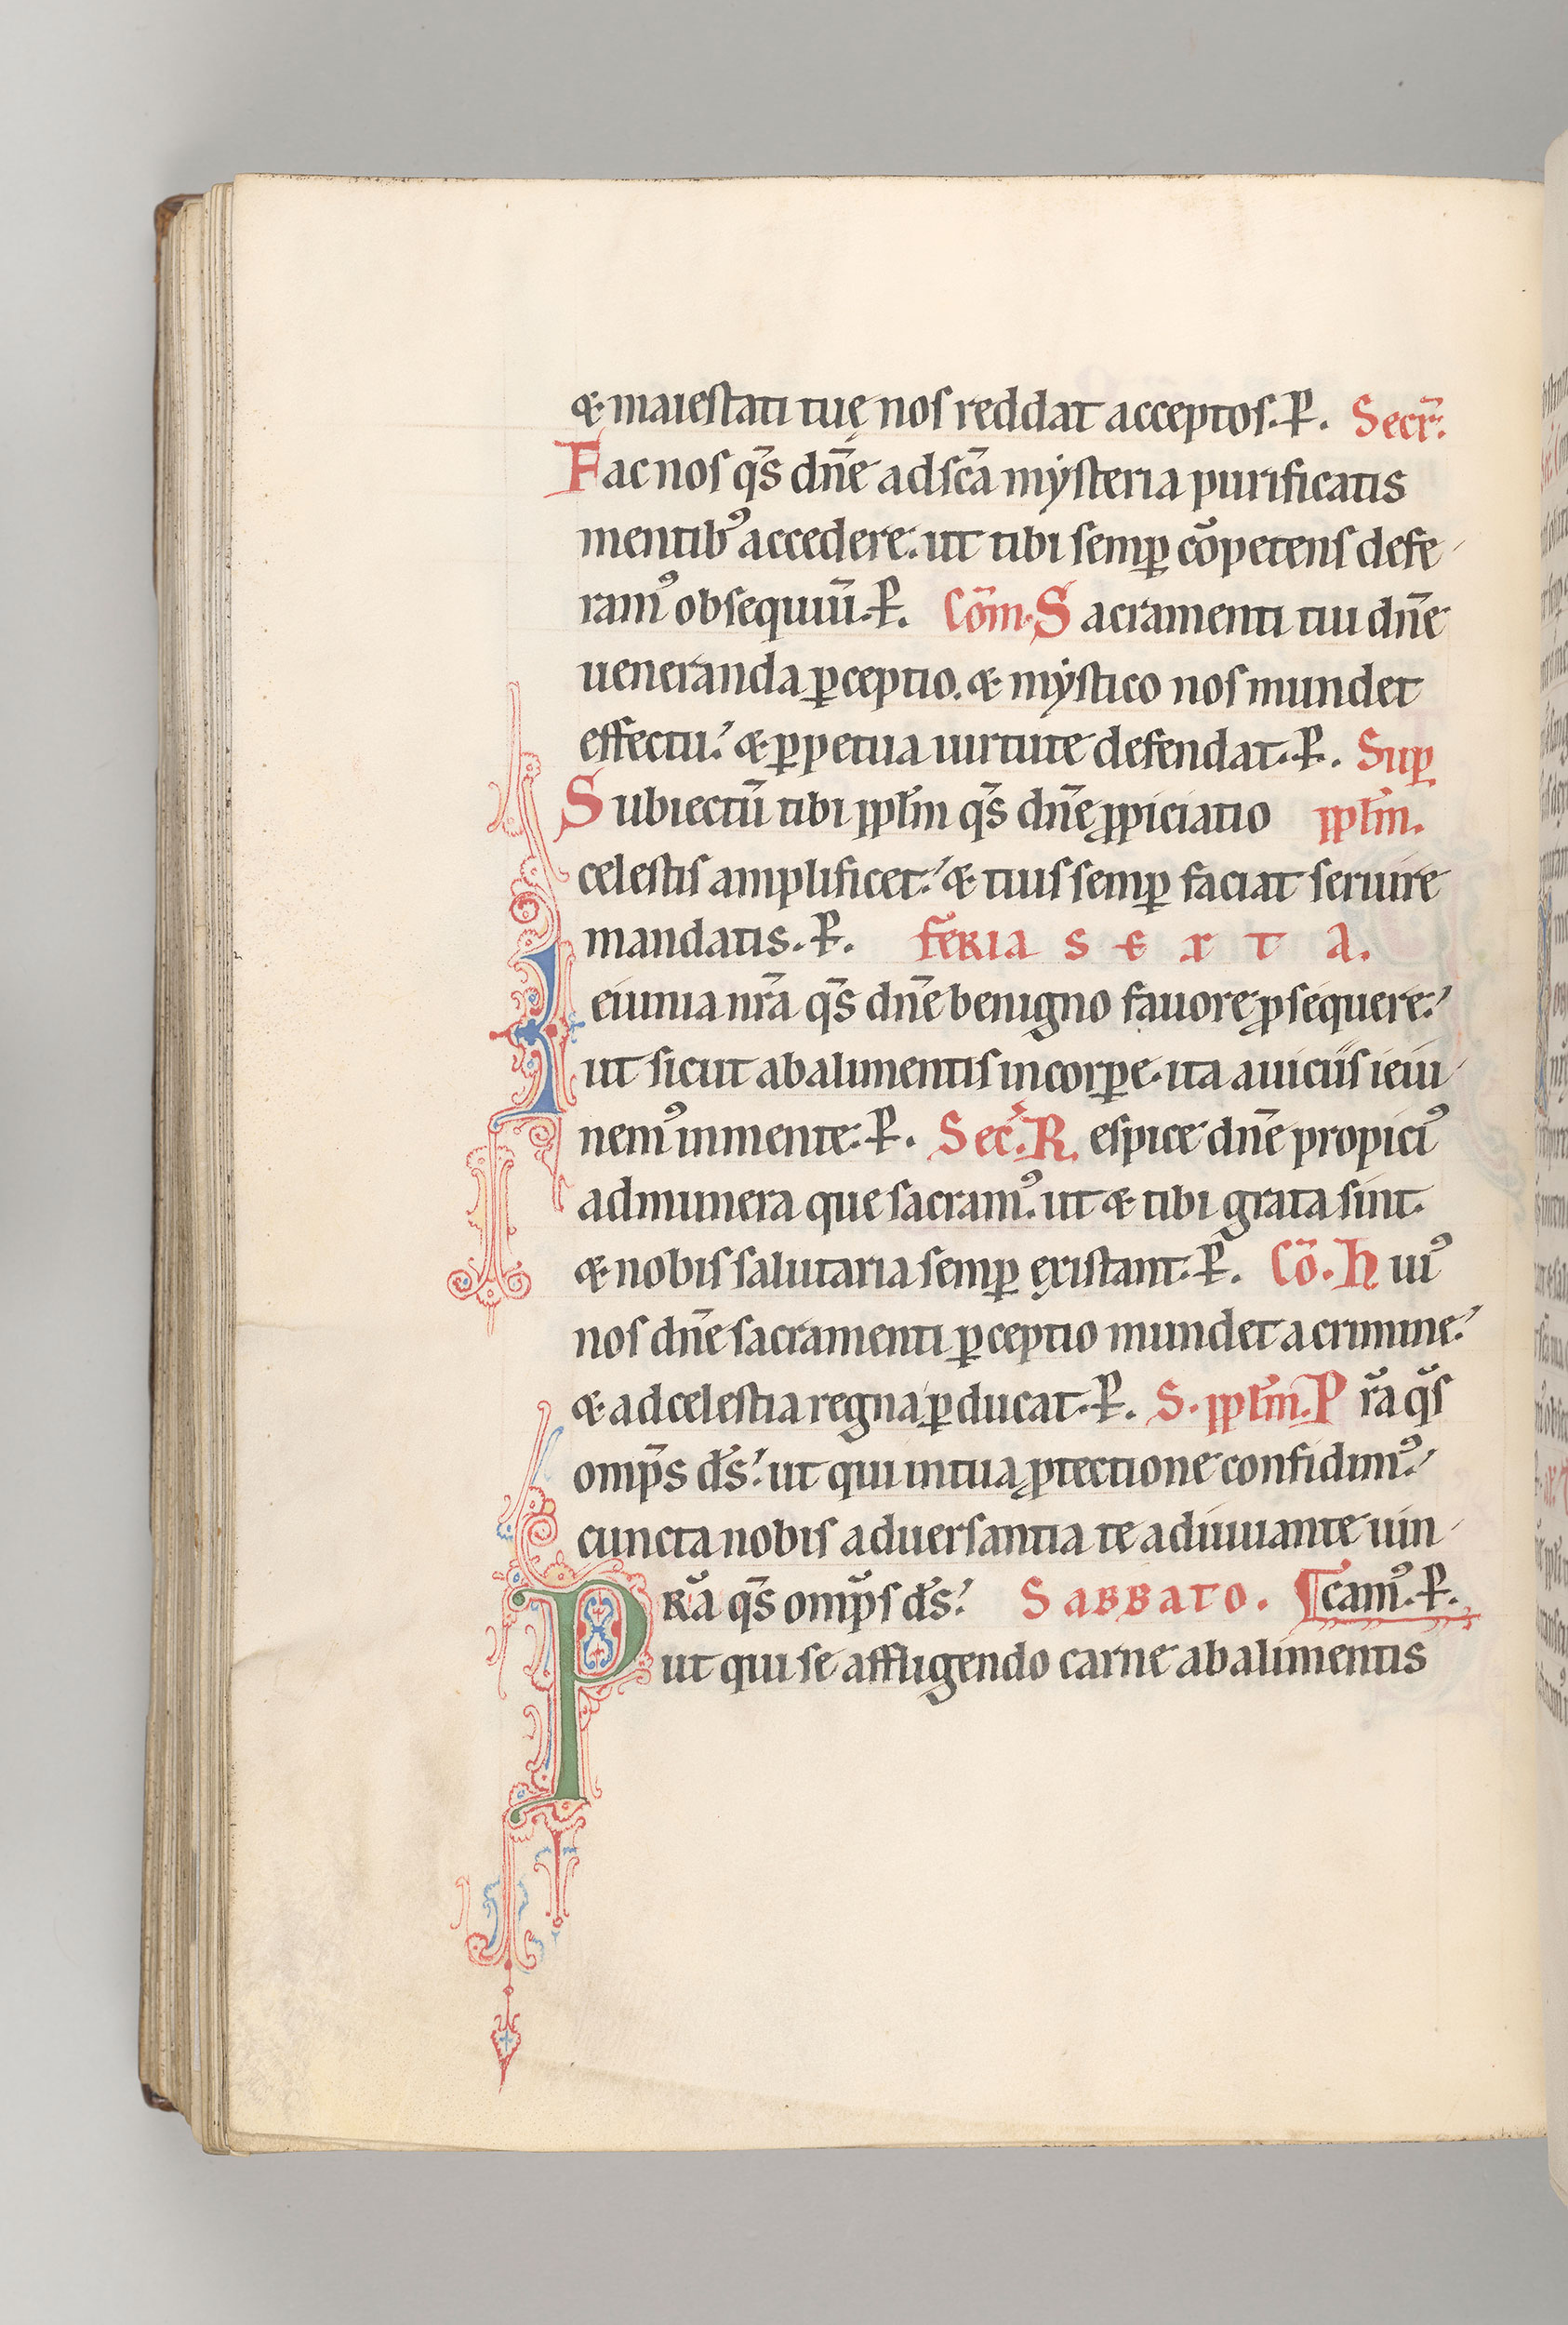 & maiestati tuę nos reddat acceptos. P̄. Secr̄.
Fac nos qs̄ dn̄e ad sc̄a mẏsteria purificatis
mentibꝰ accedere. ut tibi semꝑ cōpetens defe-
ramꝰ obsequiū. P̄. Cōm. Sacramenti tui dn̄e
ueneranda ꝑceptio. & mẏstico nos mundet
effectu. & ꝑpetua uirtute defendat. P̄. Suꝑ
Subiectū tibi ppl̄m qs̄ dn̄e ꝓpiciatio ppl̄m.
celestis amplificet. & tuis semꝑ faciat seruire
mandatis. P̄. feria sexta.
Ieiunia nr̄a qs̄ dn̄e benigno fauore ꝓsequere.
ut sicut ab alimentis in corꝑe. ita a uiciis ieiu-
nemꝰ in mente. P̄. Sec̄. Respice dn̄e propiciꝰ
ad munera que sacramꝰ. ut & tibi grata sint.
& nobis salutaria semꝑ existant. P̄. Cō. Huiꝰ
nos dn̄e sacramenti ꝑceptio mundet a crimine.
& ad celestia regna ꝑducat. P̄. S. ppl̄m. Pr̄a qs̄
omp̄s ds̄. ut qui in tua ꝓtectione confidimꝰ.
cuncta nobis aduersantia te adiuuante uin-
Pra̅ qs̄ omp̄s ds̄. Sabbato. camꝰ. P̄.
ut qui se affligendo carne ab alimentis